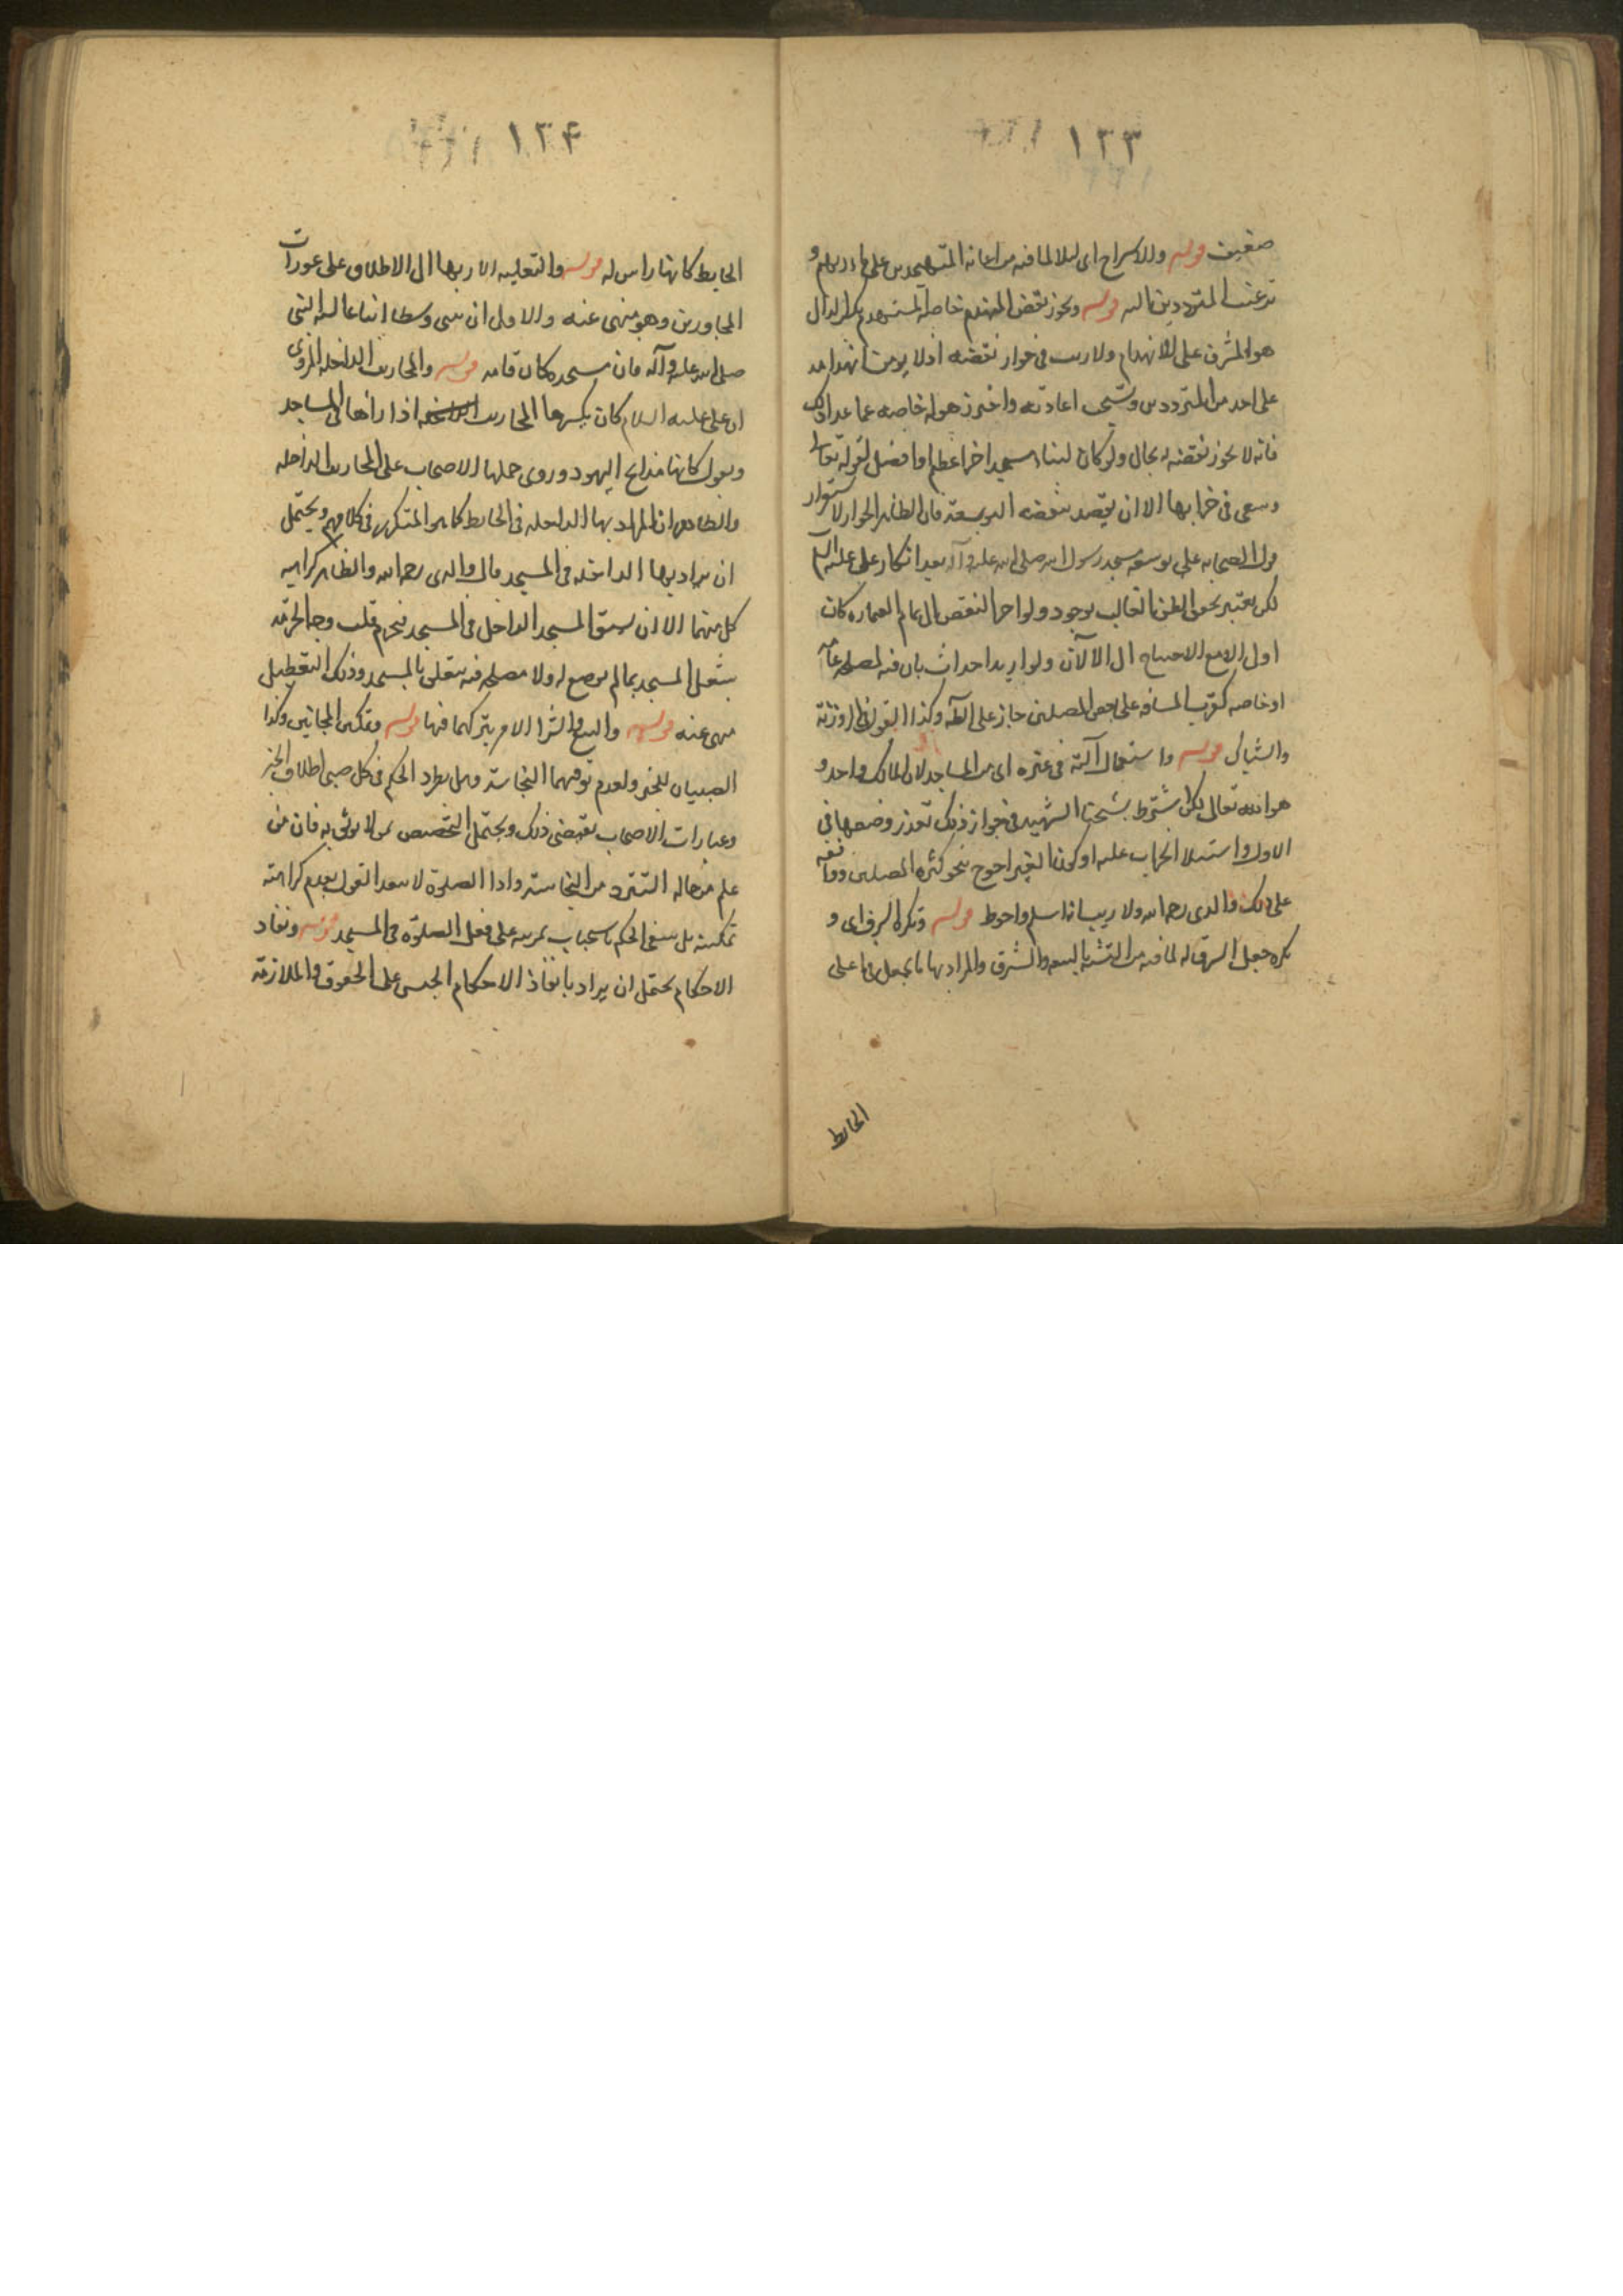 ١٣٣
ضعيف قوله والاسراج اى ليلا لما فيه من اعانة المتهجدين على
ترغيب المترددين اليه قوله ويجوز نقض المنهدم خاصة المستهدم بكسر الدال
هو المشرف على الانهدام ولا ريب فى جواز نقضه اذ لا يؤمن انهدامه
على احد من المترددين ويستحب اعادته واحترز بقوله خاصة عما عدا ذلك
فانه لا يجوز نقضه بحال ولو كان لبناء مسجد اخر اعظم وافضل لقوله تعالى
وسعى فى خرابها الا ان يقصد بنقضه التوسعة فان الظاهر الجواز لاستقرار
قول الصحابه على توسعه مسجد رسول الله صلى الله عليه وآله بعد انكار على عليه السلام
لكن يعتبر نحو الظن الغالب بوجود ولو اخر النقض الى تمام العماره كان
اولى الا مع الاحتياج الى الآلات ولو اريد احداث باب فيه لمصلحة عامه
او خاصه كقرب المسافه على بعض المصلين جاز على الله وكذا القول فى روزنة
والشباك قوله واستعمال آلته فى غيره اى من المساجد لان المالك واحد و
هو الله تعالى لكن اشترط شيخنا الشهيد فى جواز ذلك تعذر وضعها فى
الاول واستيلا الخراب عليه او كون الغير احوج نحو كثرة المصلين ووافقه
على ذلك والدى رحمه الله ولا ريب انه اسلم واحوط قوله وتكره الشرف اى و
يكره جعل الشرف له لما فيه من التشبه بالبيعه والشرف والمراد بها ما يجعل فى اعلى
الحايط
١٣٤
الحايط كانها راس له قوله والتعليه لاربها الى الاطلاع على عورات
المجاورين وهو منهى عنه والاولى ان يبنى وسطا اتباعا لسنه النبى
صلى الله عليه وآله فان مسجده كان قامه قوله والمحاريب الداخله المروى
ان على عليه السلام كان يكسرها المحاريب اذا رآها فى المساجد
ويقول كانها مذابح اليهود وروى حملها الاصحاب على المحاريب الداخله
والظاهر ان المراد بها الداخله فى الحايط كما هو المتكرر فى كلامهم ويحتمل
ان يراد بها الداخله فى المسجد قال والدى رحمه الله والظاهر كراهيه
كل منهما الا ان يسبق المسجد الداخل فى المسجد فيحرم قلت وجه الحرمه
شغل المسجد بما لم يوضع له ولا مصلحه فيه يتعلق بالمسجد وذلك التعطيل
منهى عنه قوله والبيع والشرا الامر بتركهما فيها قوله وتمكين المجانين وكذا
الصبيان للخبر ولعدم توقيهما النجاسة وهل يطرد الحكم فى كل صبى اطلاق الخبر
وعبارات الاصحاب يقتضى ذلك ويحتمل التخصيص بمن لا يوثق به فان من
علم من حاله التنزه من النجاسة واداء الصلوة لا يبعد القول بعدم كراهته
تمكينه بل ينبغى الحكم باستحباب تمرينه على فعل الصلوة فى المسجد قوله ونفاد
الاحكام يحتمل ان يراد بانفاذ الاحكام الحبس على الحقوق والملازمه